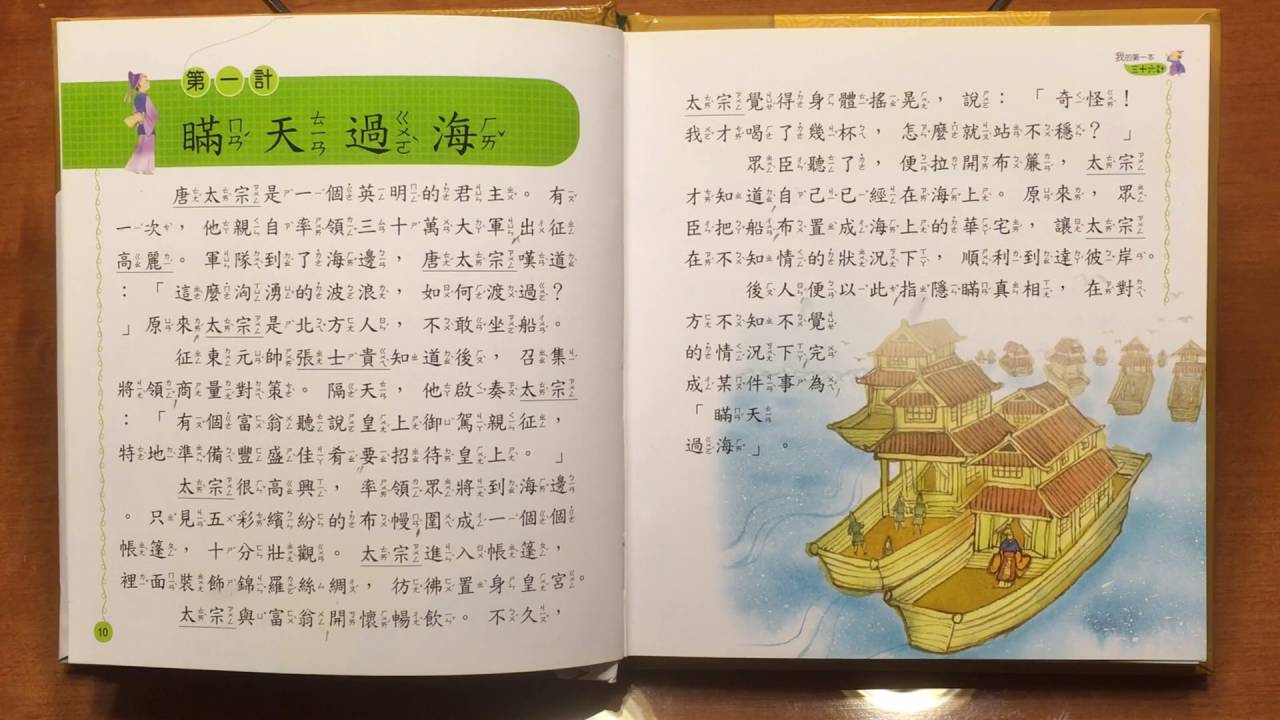 第一計
瞞天過海
唐太宗是一個英明的君主。有
一次,他親自率領三十萬大軍出征
高麗。軍隊到了海邊,唐太宗嘆道
:「這麼洶湧的波浪,如何渡過?
」原來太宗是北方人,不敢坐船。
征東元帥張士貴知道後,召集
將領商量對策。隔天,他啟奏太宗
:「有個富翁聽說皇上御駕親征,
特地準備豐盛佳肴要招待皇上。」
太宗很高興,率領眾將到海邊
。只見五彩繽紛的布幔圍成一個個
帳篷,十分壯觀。太宗進入帳篷,
裡面裝飾錦羅絲綢,彷彿置身皇宮。
太宗與富翁開懷暢飲。不久,
10
我的第一本
三十六計
太宗覺得身體搖晃,說:「奇怪!
我才喝了幾杯,怎麼就站不穩?」
眾臣聽了,便拉開布簾,太宗
才知道自己已經在海上。原來,眾
臣把船布置成海上的華宅,讓太宗
在不知情的狀況下,順利到達彼岸。
後人便以此指隱瞞真相,在對
方不知不覺
的情況下完
成某件事為
「瞞天
過海」。